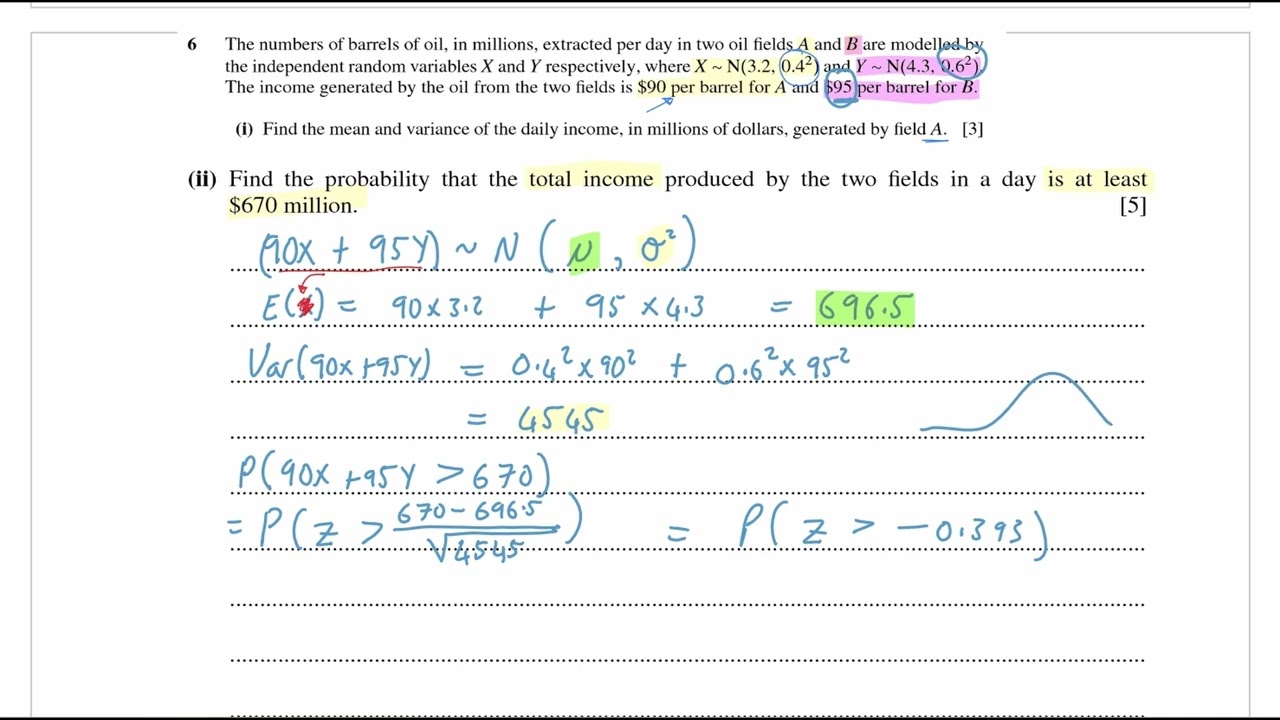 6 The numbers of barrels of oil, in millions, extracted per day in two oil fields A and B are modelled by
the independent random variables X and Y respectively, where X ~ N(3.2, 0.4²) and Y ~ N(4.3, 0.6²).
The income generated by the oil from the two fields is $90 per barrel for A and $95 per barrel for B.
(i) Find the mean and variance of the daily income, in millions of dollars, generated by field A. [3]
(ii) Find the probability that the total income produced by the two fields in a day is at least
$670 million. [5]
(90X + 95Y) ~ N (μ, σ²)
E( ) = 90 × 3.2 + 95 × 4.3 = 696.5
Var(90X + 95Y) = 0.4² × 90² + 0.6² × 95²
= 4545
P(90X + 95Y > 670)
= P(Z > (670 − 696.5)/√4545) = P(Z > −0.393)